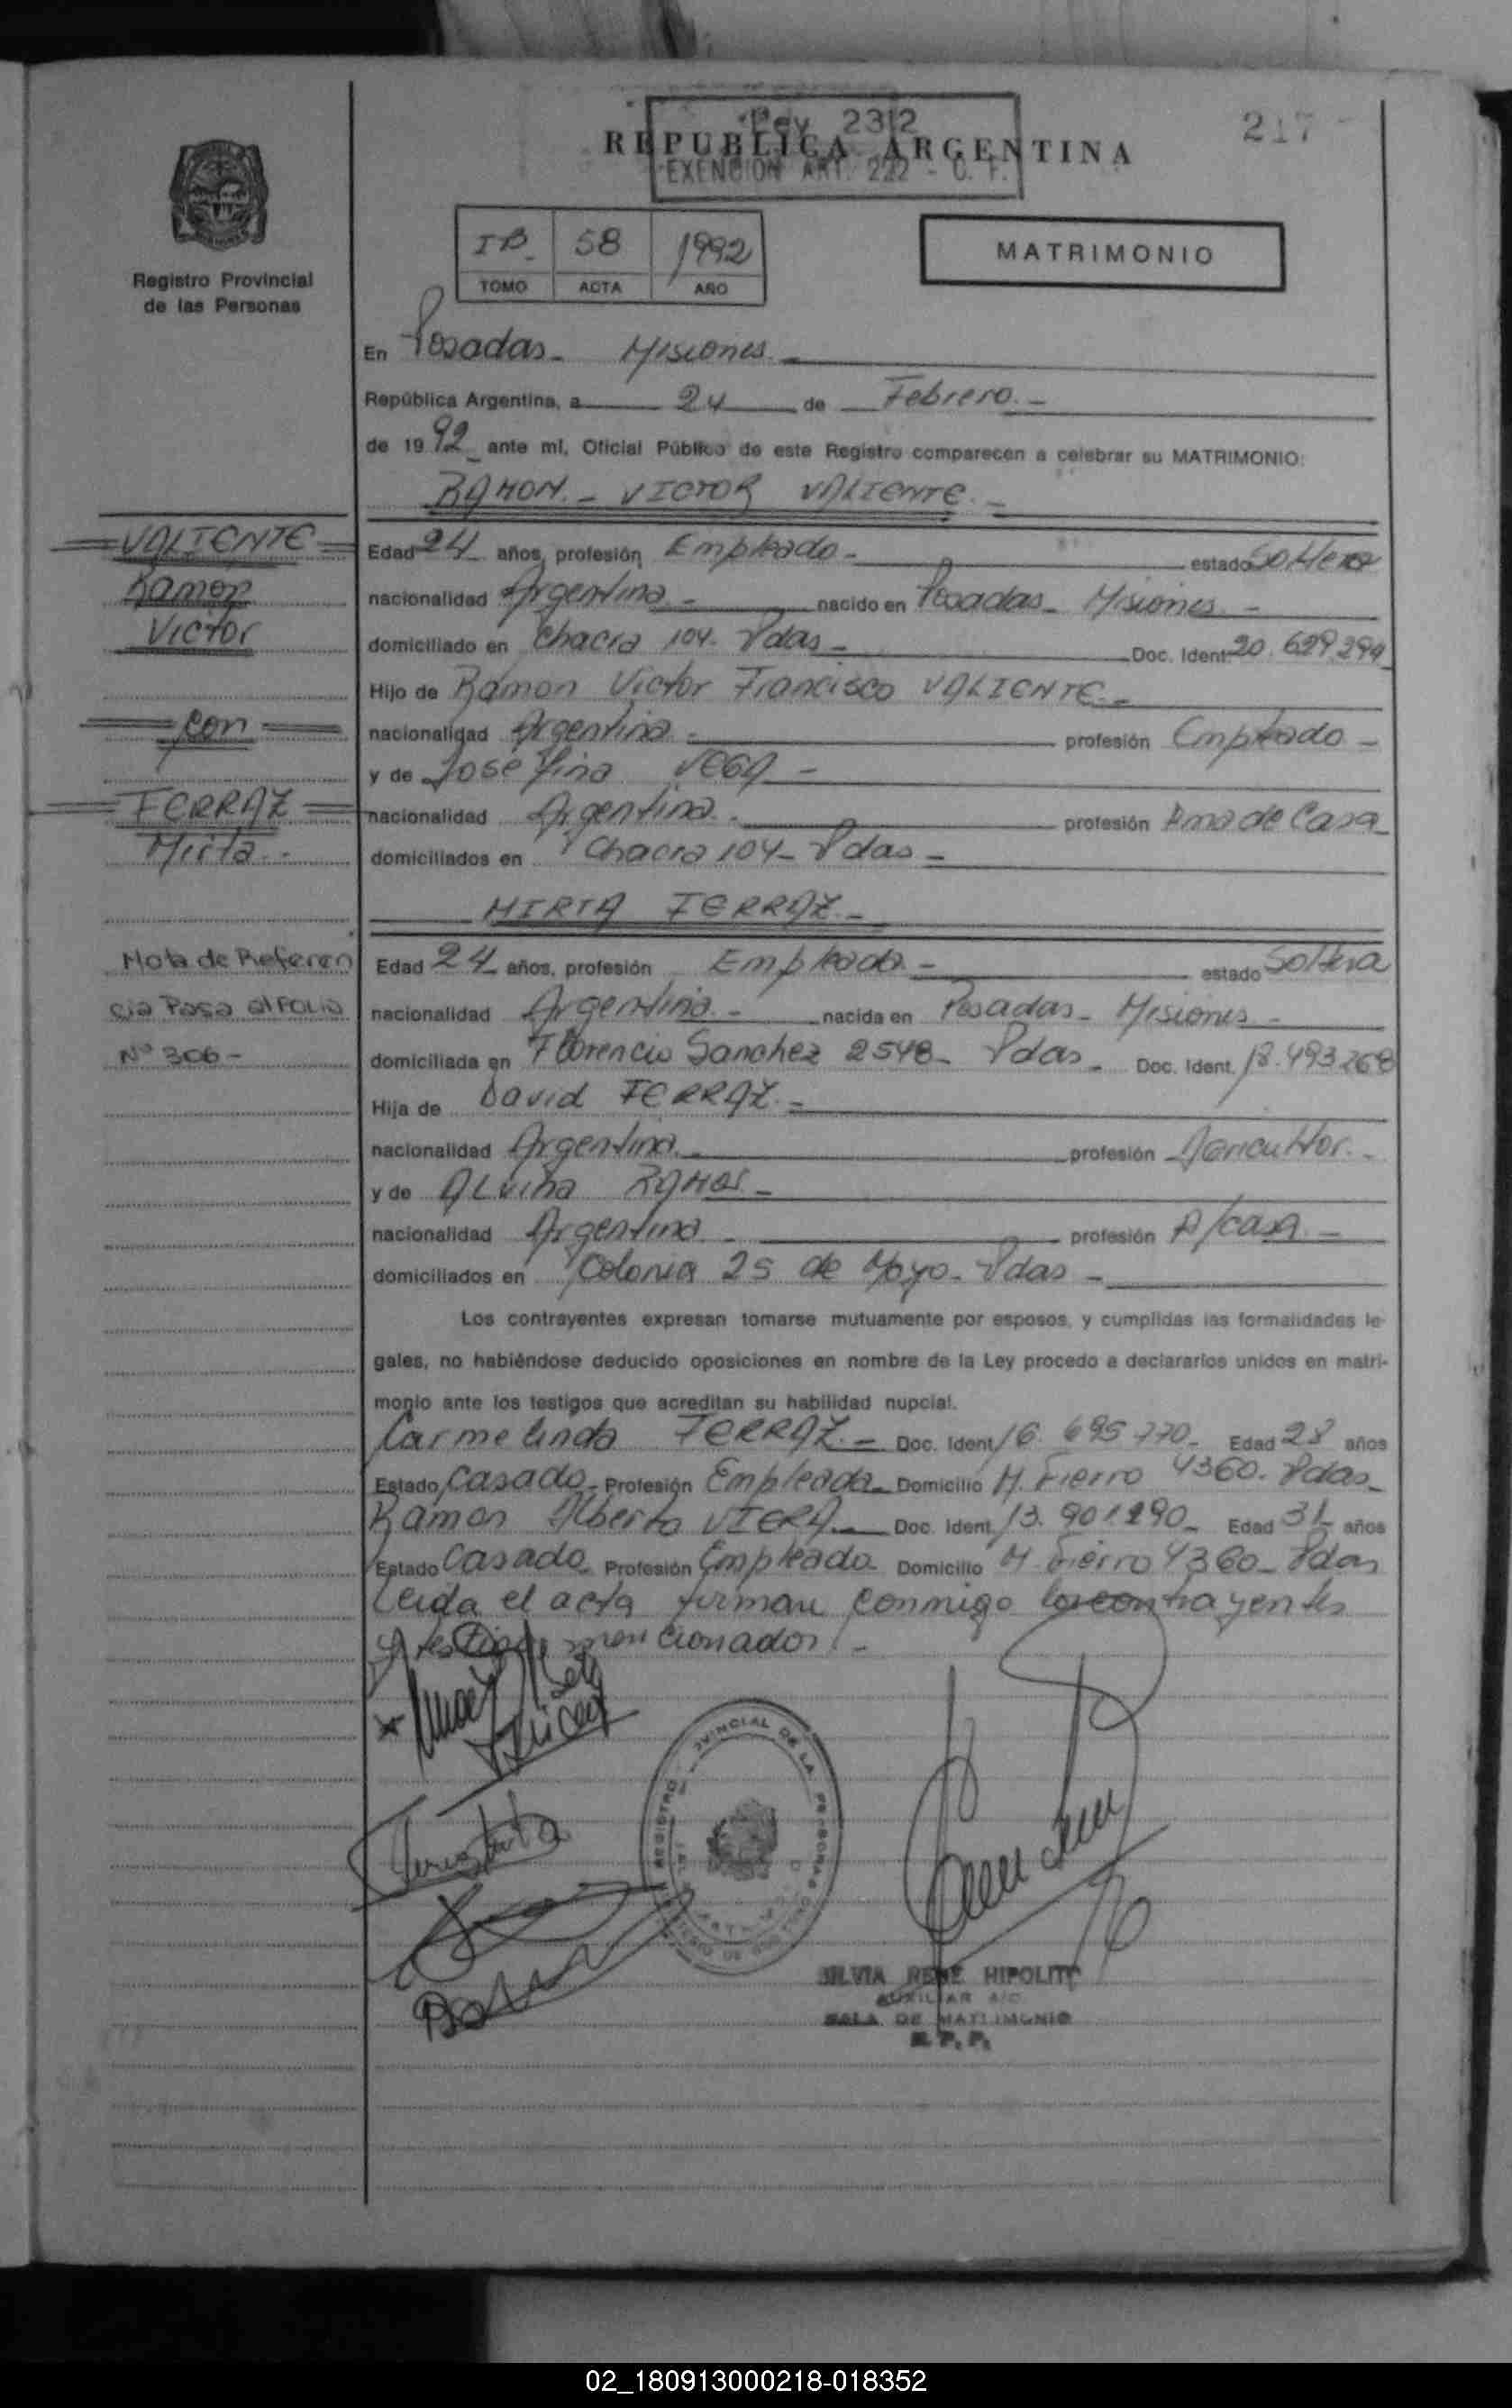 Ley 2312
217
REPUBLICA ARGENTINA
EXENCION ART. 222 - C. F.
Registro Provincial
de las Personas
IB. 58 1992
TOMO ACTA AÑO
MATRIMONIO
En Posadas - Misiones. -
República Argentina, a 24 de Febrero. -
de 19 92 ante mí, Oficial Público de este Registro comparecen a celebrar su MATRIMONIO:
RAMON. - VICTOR VALIENTE. -
VALIENTE
Ramon
Victor
con
FERRAZ
Mirta. -
Nota de Referen
cia Pasa al FOLIO
Nº 306 -
Edad 24 años, profesión Empleado - estado Soltero
nacionalidad Argentina - nacido en Posadas - Misiones -
domiciliado en Chacra 104 - Pdas - Doc. Ident. 20.629.294
Hijo de Ramon Victor Francisco VALIENTE. -
nacionalidad Argentina - profesión Empleado -
y de Josefina VEGA -
nacionalidad Argentina. - profesión Ama de Casa
domiciliados en Chacra 104 - Pdas -
MIRTA FERRAZ -
Edad 24 años, profesión Empleada - estado Soltera
nacionalidad Argentina - nacida en Posadas - Misiones -
domiciliada en Florencio Sanchez 2548 - Pdas - Doc. Ident. 18.493.268
Hija de David FERRAZ. -
nacionalidad Argentina. - profesión Agricultor. -
y de ALVINA RAMOS -
nacionalidad Argentina - profesión A/casa. -
domiciliados en Colonia 25 de Mayo - Pdas -
Los contrayentes expresan tomarse mutuamente por esposos, y cumplidas las formalidades le-
gales, no habiéndose deducido oposiciones en nombre de la Ley procedo a declararlos unidos en matri-
monio ante los testigos que acreditan su habilidad nupcial.
Carmelinda FERRAZ. - Doc. Ident. 16.695.770 - Edad 28 años
Estado Casado - Profesión Empleada - Domicilio M. Fierro 4360 - Pdas -
Ramon Alberto VIERA - Doc. Ident. 13.901.290 - Edad 31 años
Estado Casado - Profesión Empleado - Domicilio M. Fierro 4360 - Pdas
Leida el acta firman conmigo los contrayentes
y testigos mencionados. -
REGISTRO PROVINCIAL DE LAS PERSONAS
SILVIA RENE HIPOLITO
AUXILIAR A/C
SALA DE MATRIMONIO
R. P. P.
02_180913000218-018352